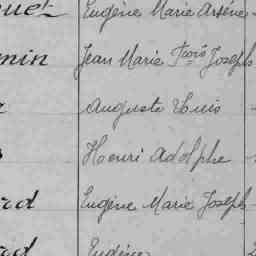 quet Eugène Marie Arsène
min Jean Marie Fçois Joseph
Auguste Louis
Henri Adolphe
rd Eugène Marie Joseph
rd Eugène